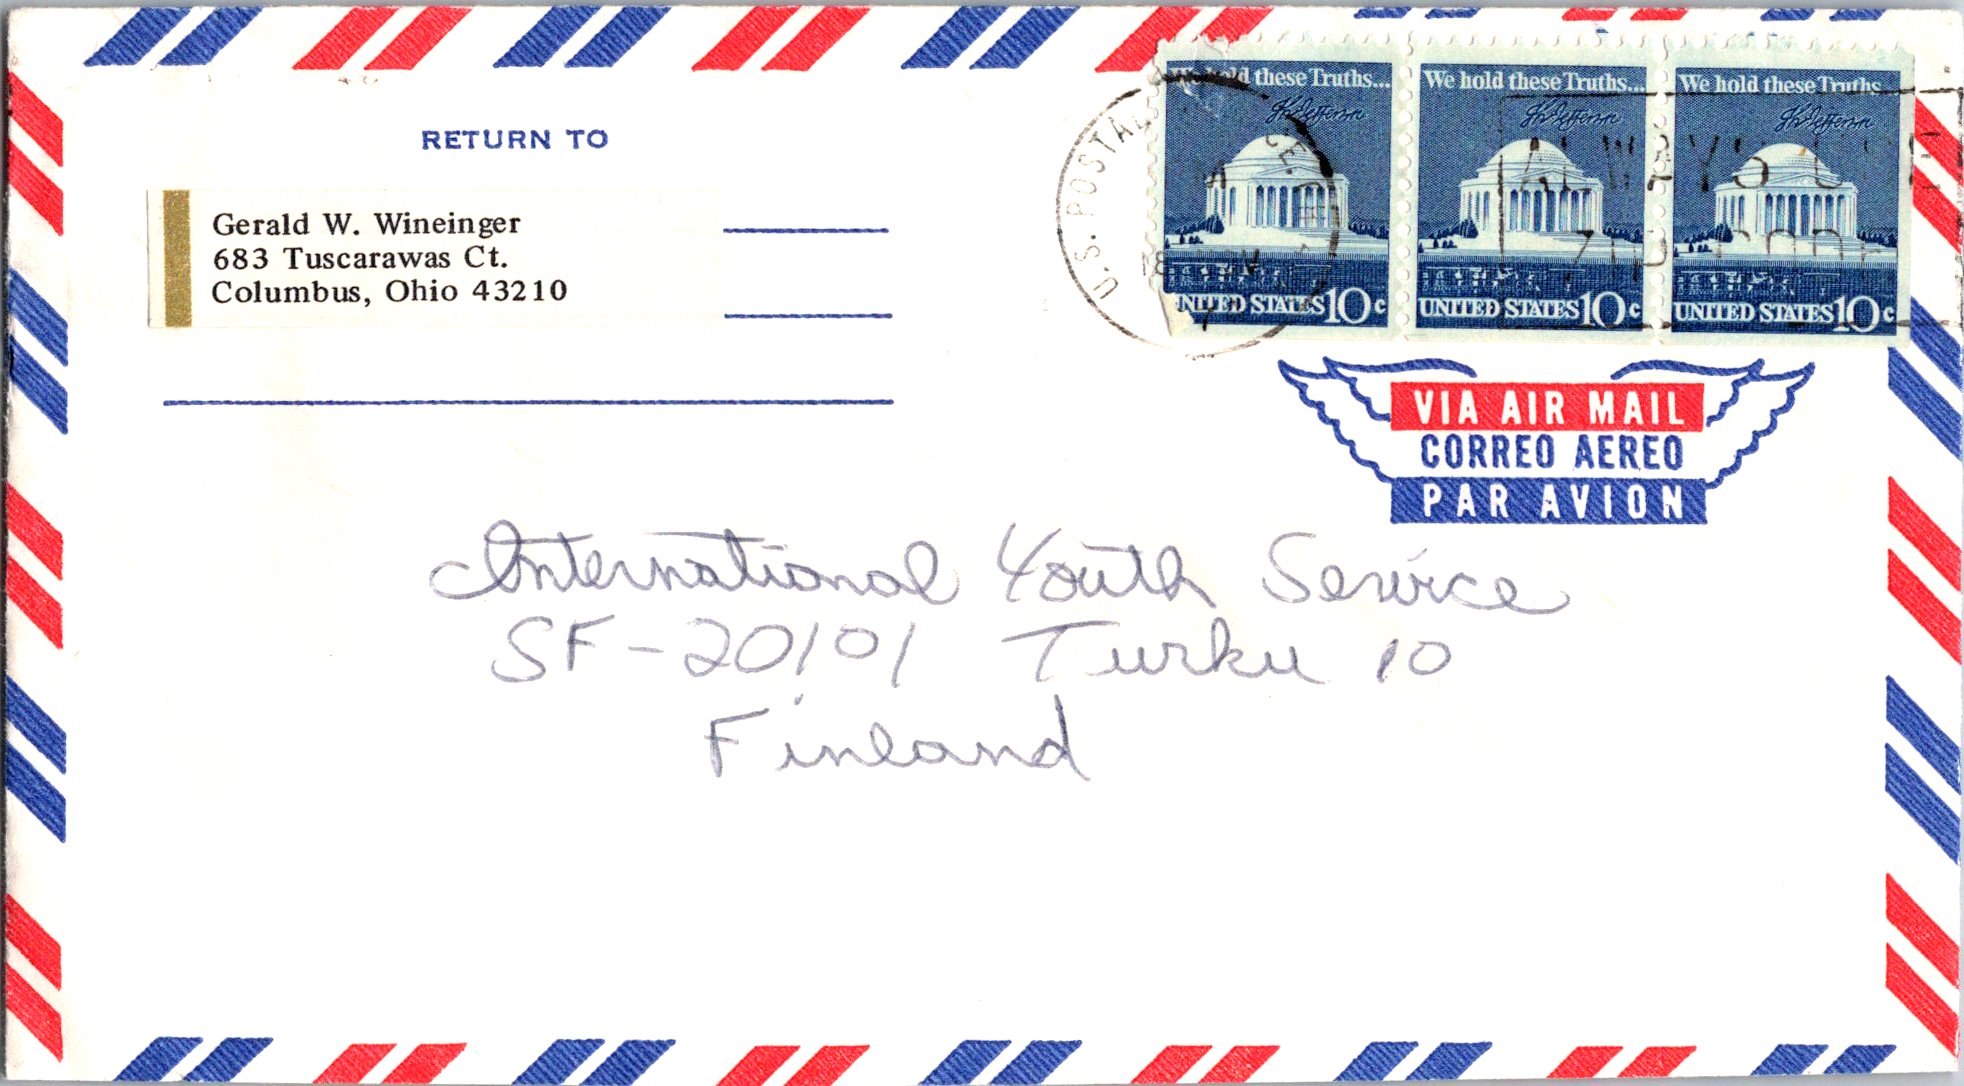 RETURN TO
Gerald W. Wineinger
683 Tuscarawas Ct.
Columbus, Ohio 43210
We hold these Truths...
Th Jefferson
UNITED STATES 10c
We hold these Truths...
Th Jefferson
UNITED STATES 10c
We hold these Truths
Th Jefferson
UNITED STATES 10c
U.S. POSTAL
ALWAYS USE
ZIP CODE
VIA AIR MAIL
CORREO AEREO
PAR AVION
International Youth Service
SF-20101 Turku 10
Finland